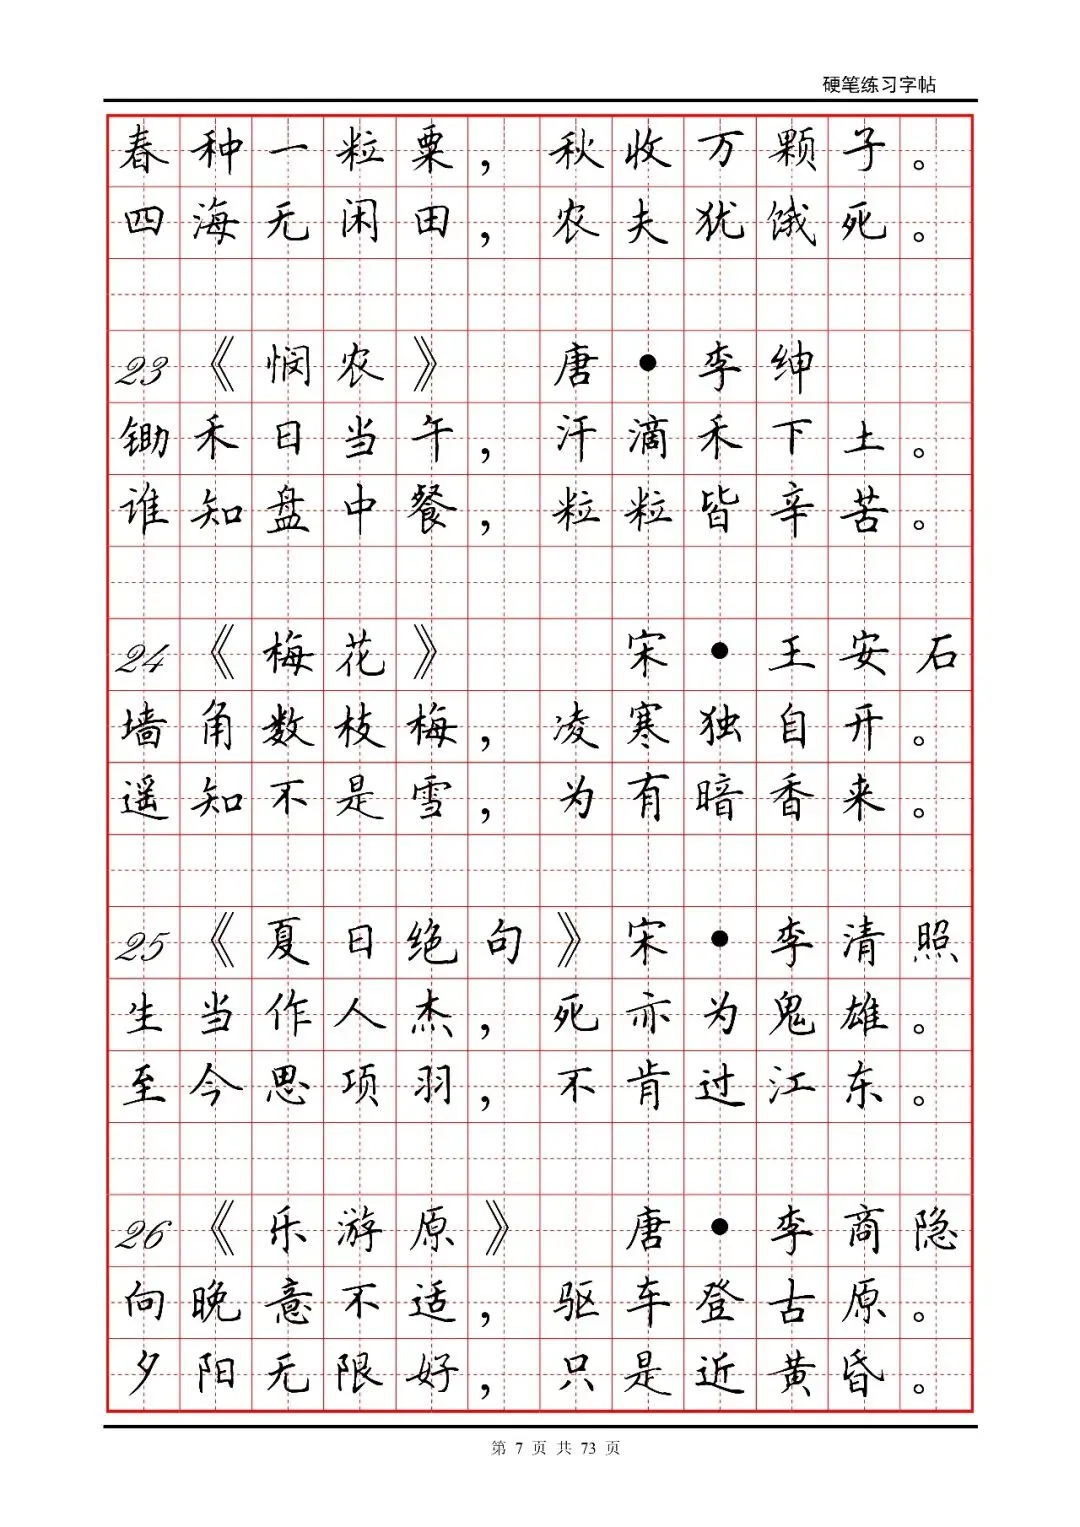 硬笔练习字帖
春种一粒粟，秋收万颗子。
四海无闲田，农夫犹饿死。
23《悯农》 唐•李绅
锄禾日当午，汗滴禾下土。
谁知盘中餐，粒粒皆辛苦。
24《梅花》 宋•王安石
墙角数枝梅，凌寒独自开。
遥知不是雪，为有暗香来。
25《夏日绝句》宋•李清照
生当作人杰，死亦为鬼雄。
至今思项羽，不肯过江东。
26《乐游原》 唐•李商隐
向晚意不适，驱车登古原。
夕阳无限好，只是近黄昏。
第 7 页 共 73 页